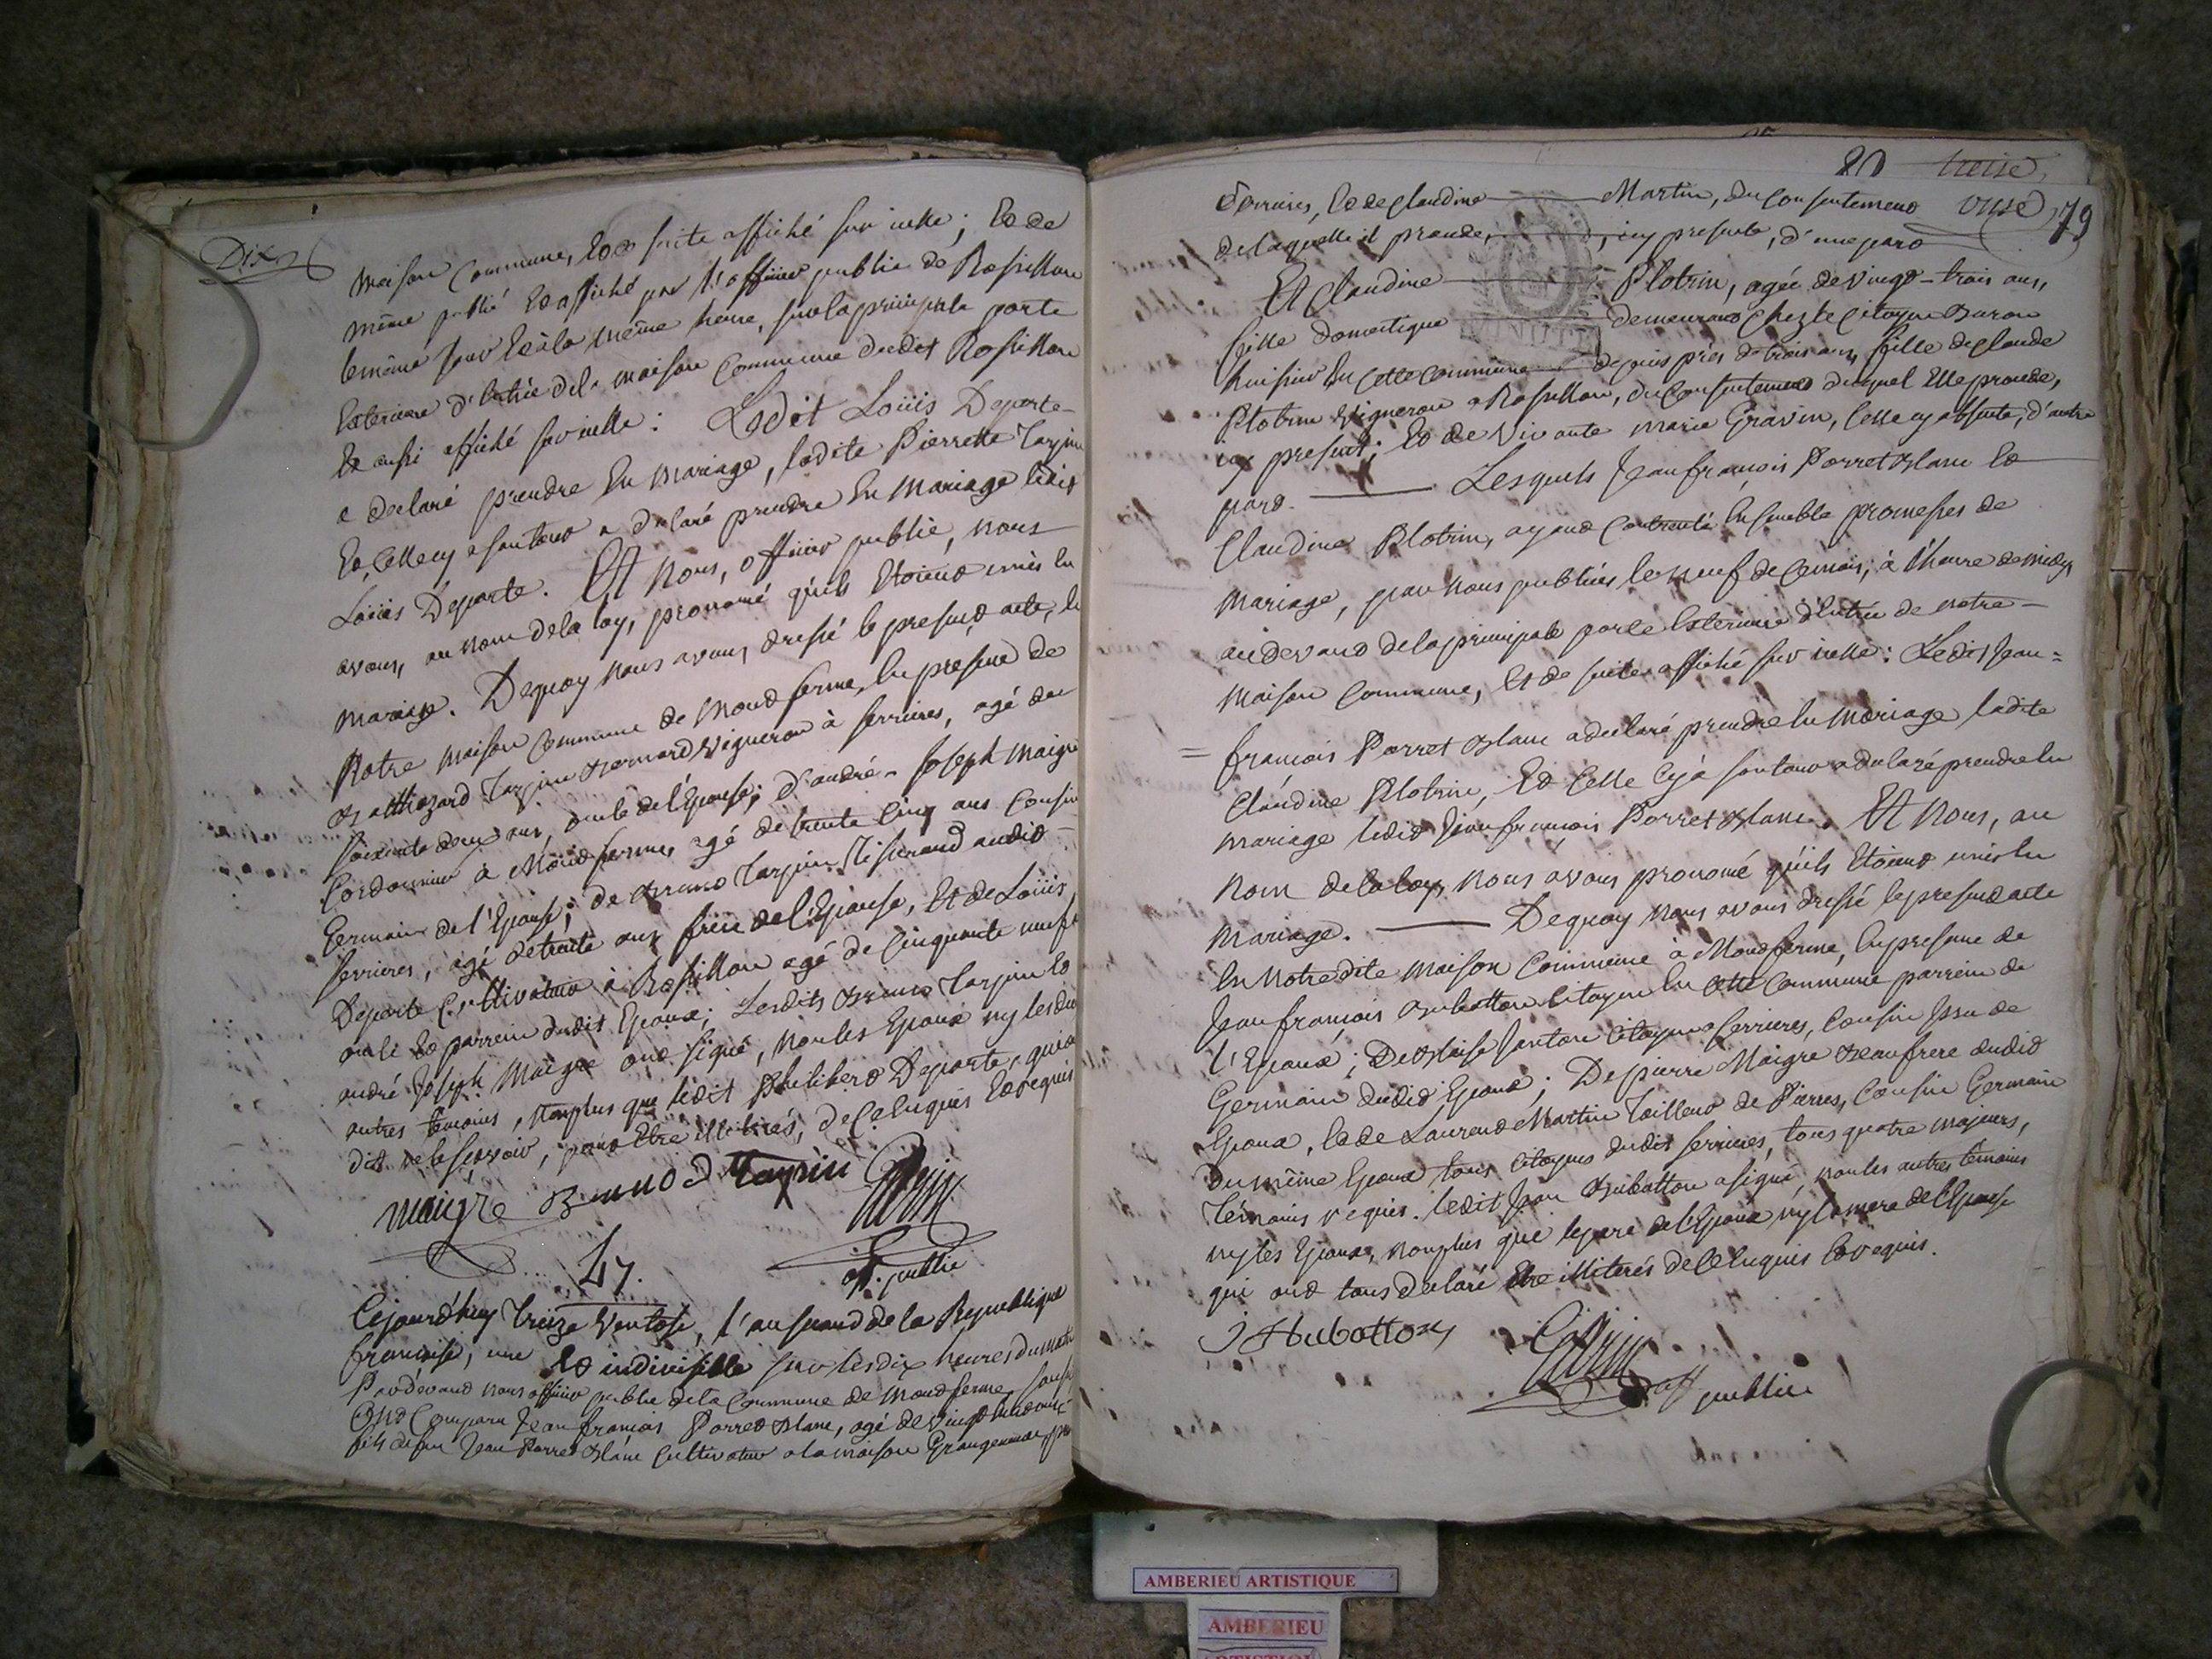 Dix
maison Commune, Et de suite affiché sur icelle ; Et de
même publié Et affiché par l'officier public de Rossillon
le même jour Et à la même heure, sur la principale porte
Exterieure d'Entrée de la maison Commune dudit Rossillon
Et aussi affiché sur icelle : Ledit Loüis Deporte
a declaré prendre En mariage, ladite Pierrette Tarpin
Et, Celle cy a son tour a declaré prendre En Mariage ledit
Loüis Deporte. Et Nous, officier public, nous
avons, au nom de la loy, prononcé qu'ils Etoient unis En
mariage. Dequoy nous avons dressé le present acte, En
Notre maison Commune de Montferme, En presence de
Balthazard Tarpin Bernard vigneron à serrieres, agé de
soixante deux ans, oncle de l'Epouse ; d'andré Joseph Maigre
Cordonnier à Montferme, agé de trente Cinq ans Cousin
Germain de l'Epouse ; de Bruno Tarpin Tisserand audit
serrieres, agé de trente ans frere de l'Epouse, Et de Loüis
Deporte Cultivateur à Rossillon agé de Cinquante neuf
oncle Et parrein dudit Epoux ; Lesdits Bruno Tarpin Et
andré Joseph Maigre ont signé, non les Epoux ny les deux
autres temoins, non plus que ledit Philibert Deporte, qui ont
dit ne le sçavoir, pour Etre illiterés, de Ce Enquis Et requis
maigre Bruno Tarpin
off. public
47.
Cejourd'huy treize Ventose, l'an second de la Republique
françoise, une Et indivisible sur les dix heures du matin
Pardevant nous officier public de la Commune de Montferme, sous
Ont Comparu Jean françois Porret Blanc, agé de vingt huit ans,
fils de feu Jean Porret Blanc Cultivateur a la maison Grangeneuve
80 treise
onse 79
serrieres, Et de Claudine Martin, du Consentement
de laquelle il procede, icy presente, d'une part
Et Claudine Plotrin, agée de vingt-trois ans,
fille domestique demeurant chez le Citoyen Buron
huissier En Cette Commune depuis près de trois ans, fille de Claude
Plotrin vigneron a Rossillon, du Consentement duquel Elle procede,
icy present ; Et de vivante marie Gravin, Celle cy absente, d'autre
part. Lesquels Jean françois Porret Blanc Et
Claudine Plotrin, ayant Contracté Ensemble promesses de
mariage, par nous publiées le neuf de Ce mois, à l'heure de midy
audevant de la principale porte Exterieure d'Entrée de notre
maison Commune, Et de suite affiché sur icelle : Ledit Jean =
= françois Porret Blanc a declaré prendre En mariage ladite
Claudine Plotrin, Et Celle Cy à son tour a declaré prendre En
mariage ledit Jean françois Porret Blanc. Et Nous, au
nom de la loy, nous avons prononcé qu'ils Etoient unis En
mariage. Dequoy nous avons dressé le present acte
En Notre dite maison Commune à Montferme, En presence de
Jean françois Bubatton Citoyen En Cette Commune parrein de
l'Epoux ; De Blaise Citoyen a serrieres, Cousin Issu de
Germain dudit Epoux ; De pierre Maigre Beaufrere dudit
Epoux, Et de Laurent Martin Tailleur de Pierres, Cousin Germain
du même Epoux tous Citoyens dudit serrieres, tous quatre majeurs,
Témoins requis. ledit Jean Bubatton a signé, non les autres témoins
ny les Epoux, non plus que le pere de l'Epoux ny la mere de l'Epouse
qui ont tous declaré Etre illiterés de Ce Enquis Et requis.
J Bubatton
off public
AMBERIEU ARTISTIQUE
AMBERIEU